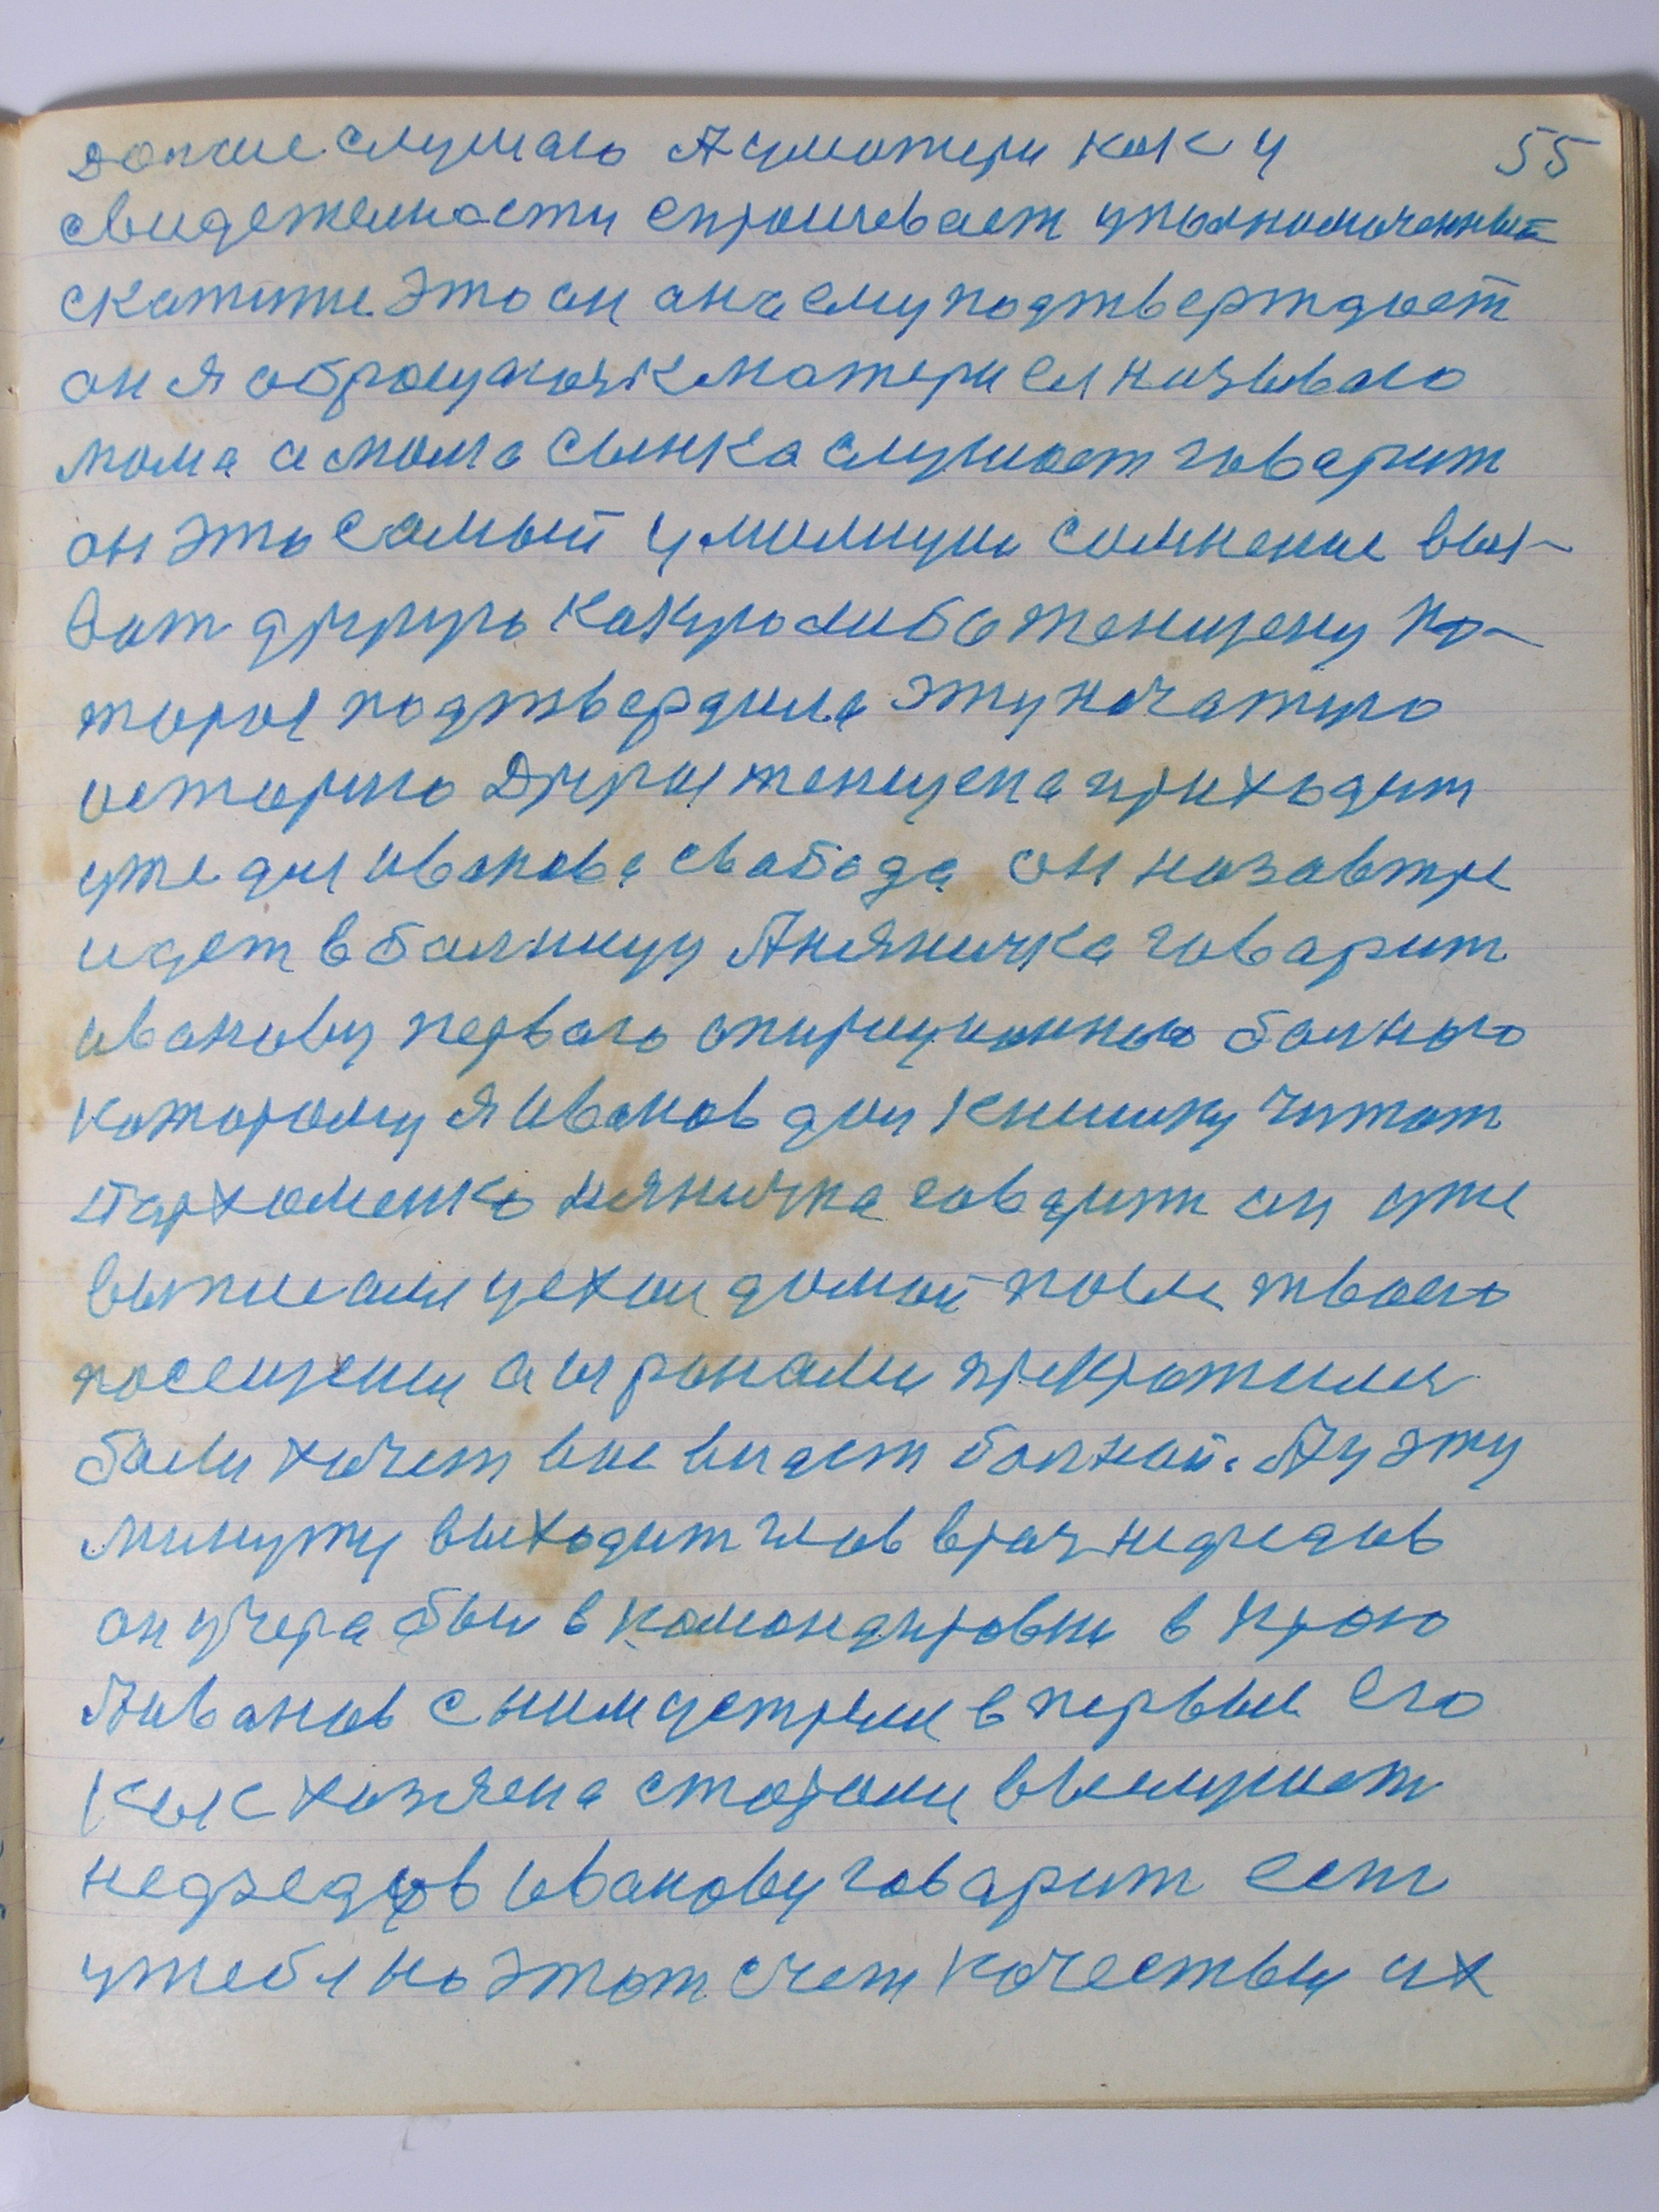 дольше слушаю А уматери как у 55
свидетельности спрошевает уполномоченный
скажите это он она ему подтверждает
он я обращаюся к матери ея называю
мома а мома сынка слушает говарит
он это самый умилицыи сомнение выз-
вот другую какуюлибо женщену ко-
торое подтвердила эту начатую
историю Другая женщена приходит
уже для иванова свабода он назавтре
идет в балницу А няничка говарит
иванову первого опирационного балного
которому я Иванов дал книшку читат
Пархоменко няничка говарит он уже
выписался уехал домой после твоего
посещения а ыго раналы прекротилися
боли хочет вас видет балной. А у эту
минуту выходит глав врач недредов
он учера был в командировки в краю
А иванов с ним устреле в первые его
как хазяена стараны выслушает
недредов иванову говарит ест
утебя на этот счет качествы их